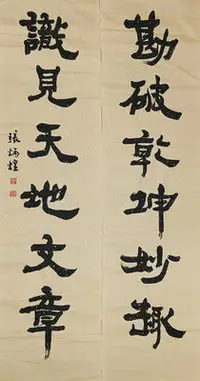 勘破乾坤妙趣
識見天地文章
張炳煌